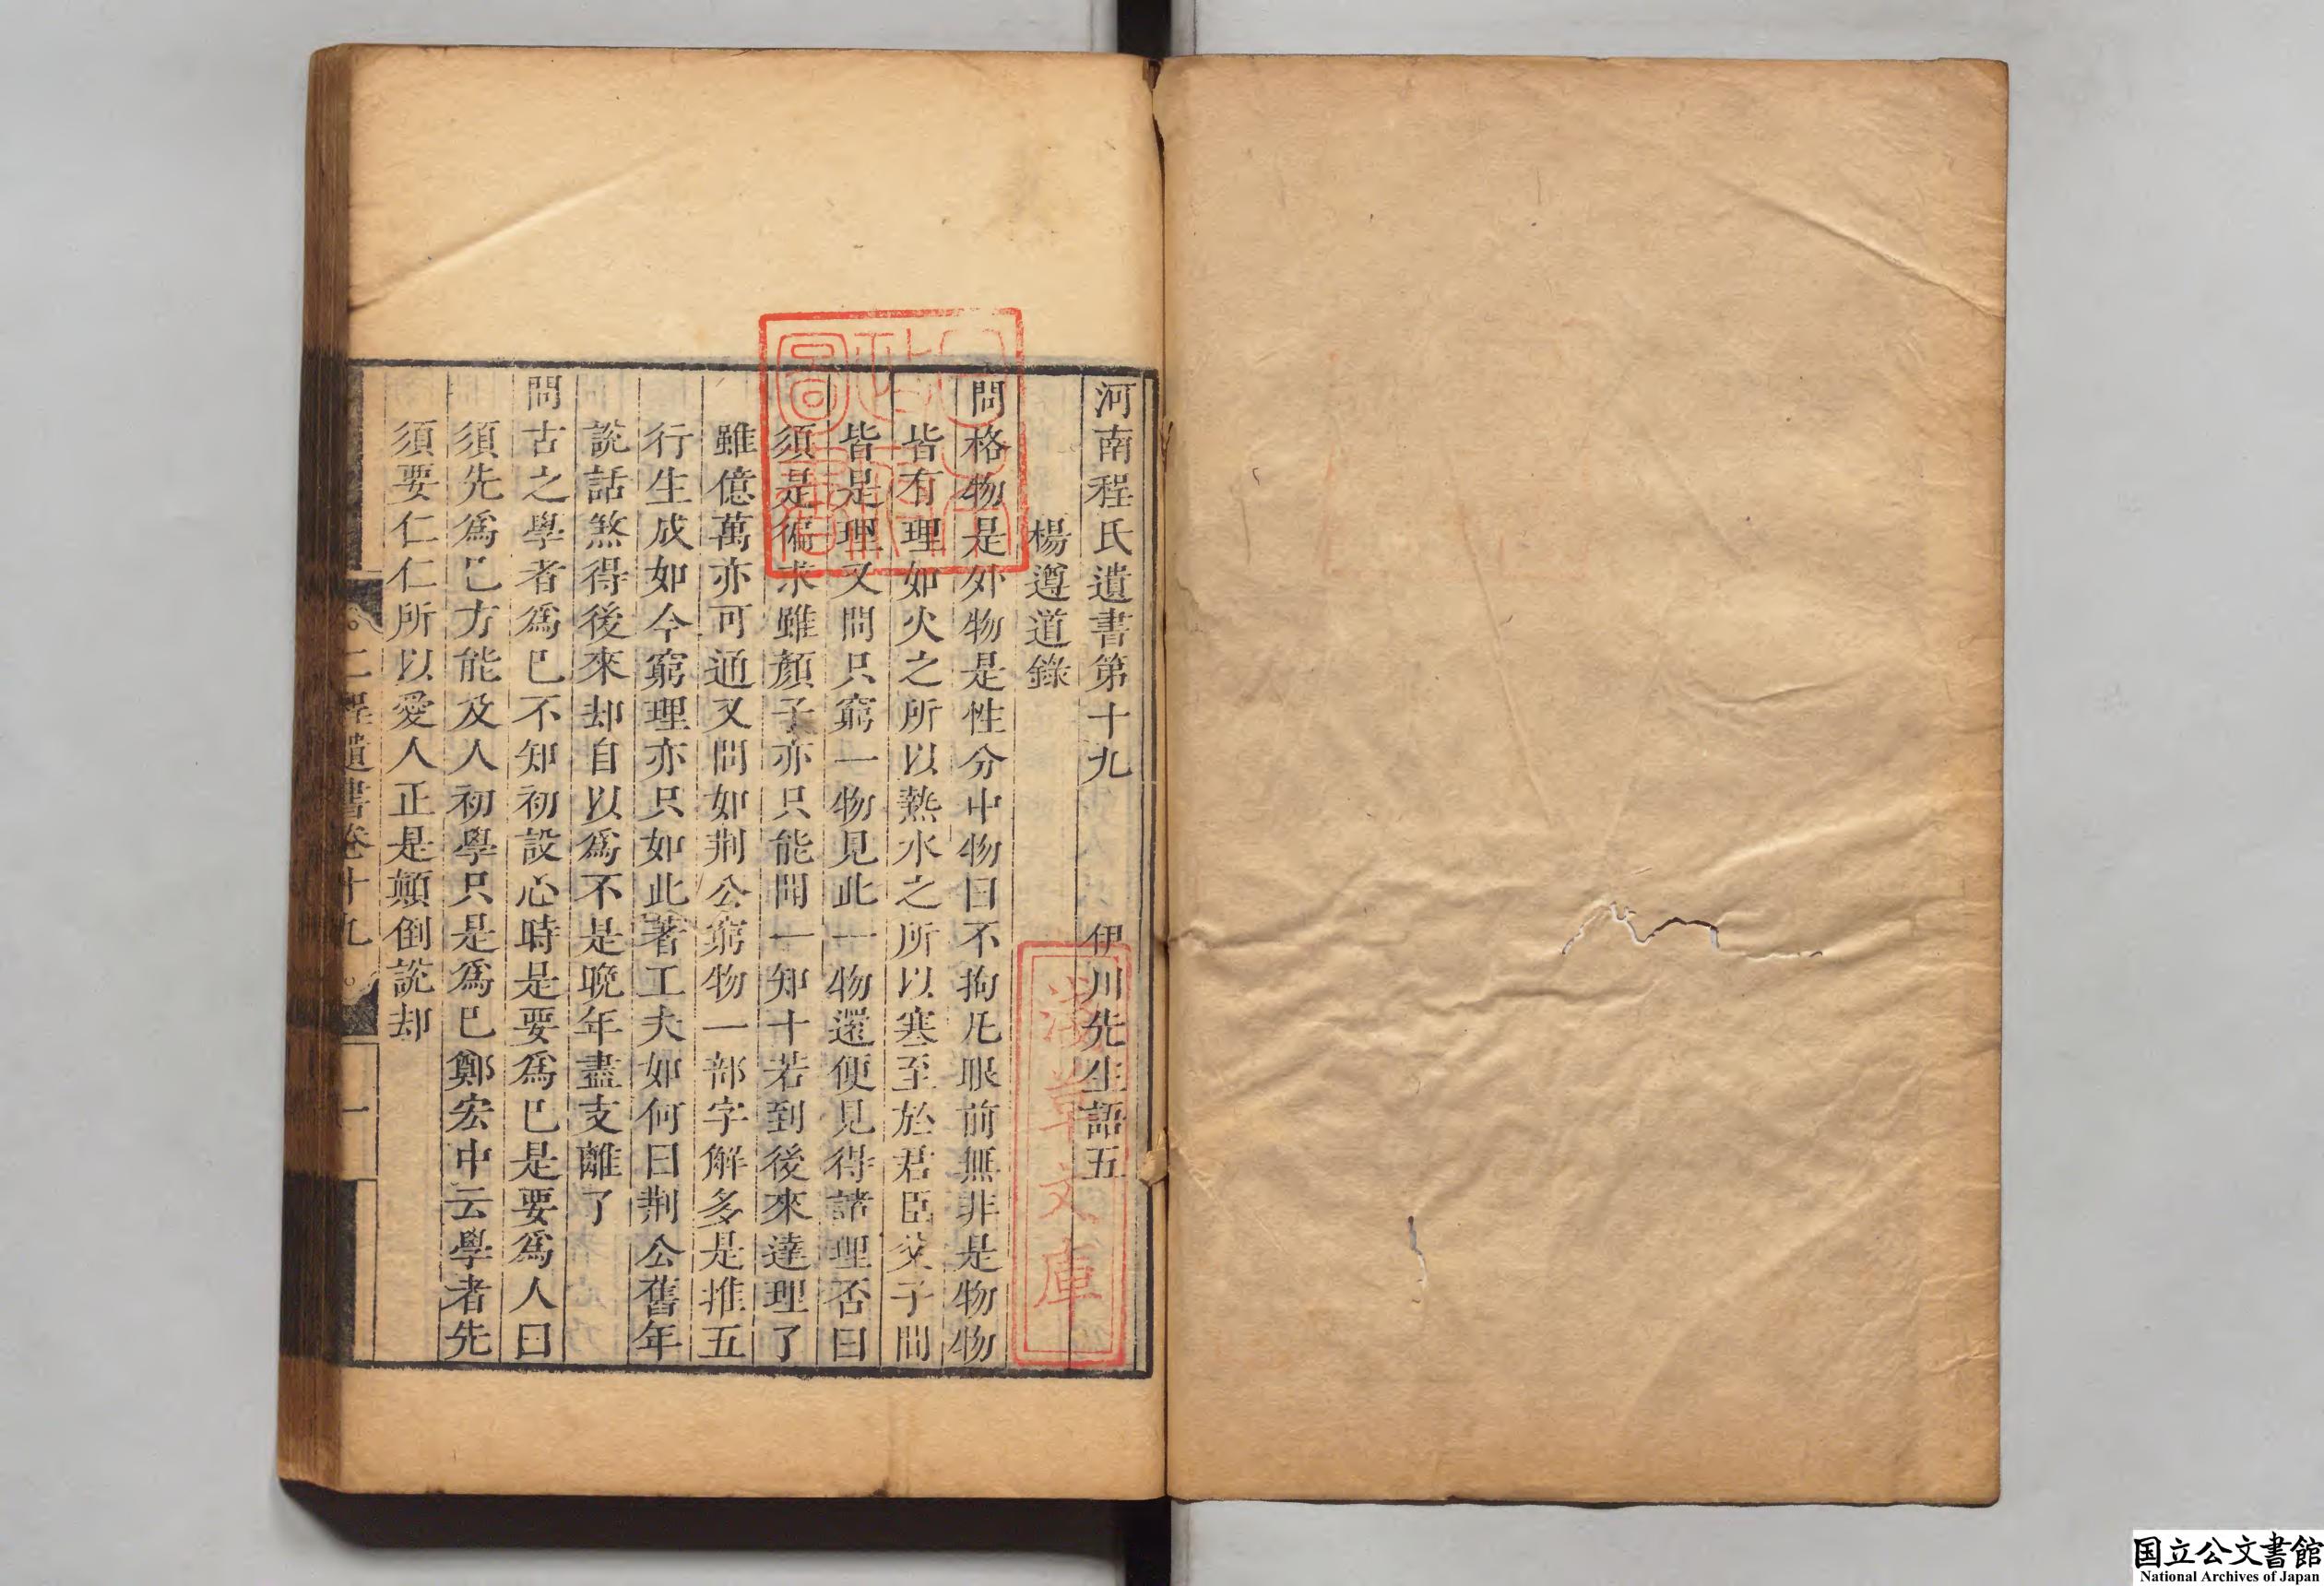 河南程氏遺書第十九　伊川先生語五
楊遵道錄
問格物是外物是性分中物曰不拘凡眼前無非是物物
皆有理如火之所以熱水之所以寒至於君臣父子間
皆是理又問只窮一物見此一物還便見得諸理否曰
須是徧求雖顏子亦只能聞一知十若到後來達理了
雖億萬亦可通又問如荆公窮物一部字解多是推五
行生成如今窮理亦只如此著工夫如何曰荆公舊年
說話煞得後來却自以爲不是晩年盡支離了
問古之學者爲己不知初設心時是要爲己是要爲人曰
須先爲己方能及人初學只是爲己鄭宏中云學者先
須要仁仁所以愛人正是顛倒說却
二程遺書卷十九
一
淺草文庫
国立公文書館
National Archives of Japan